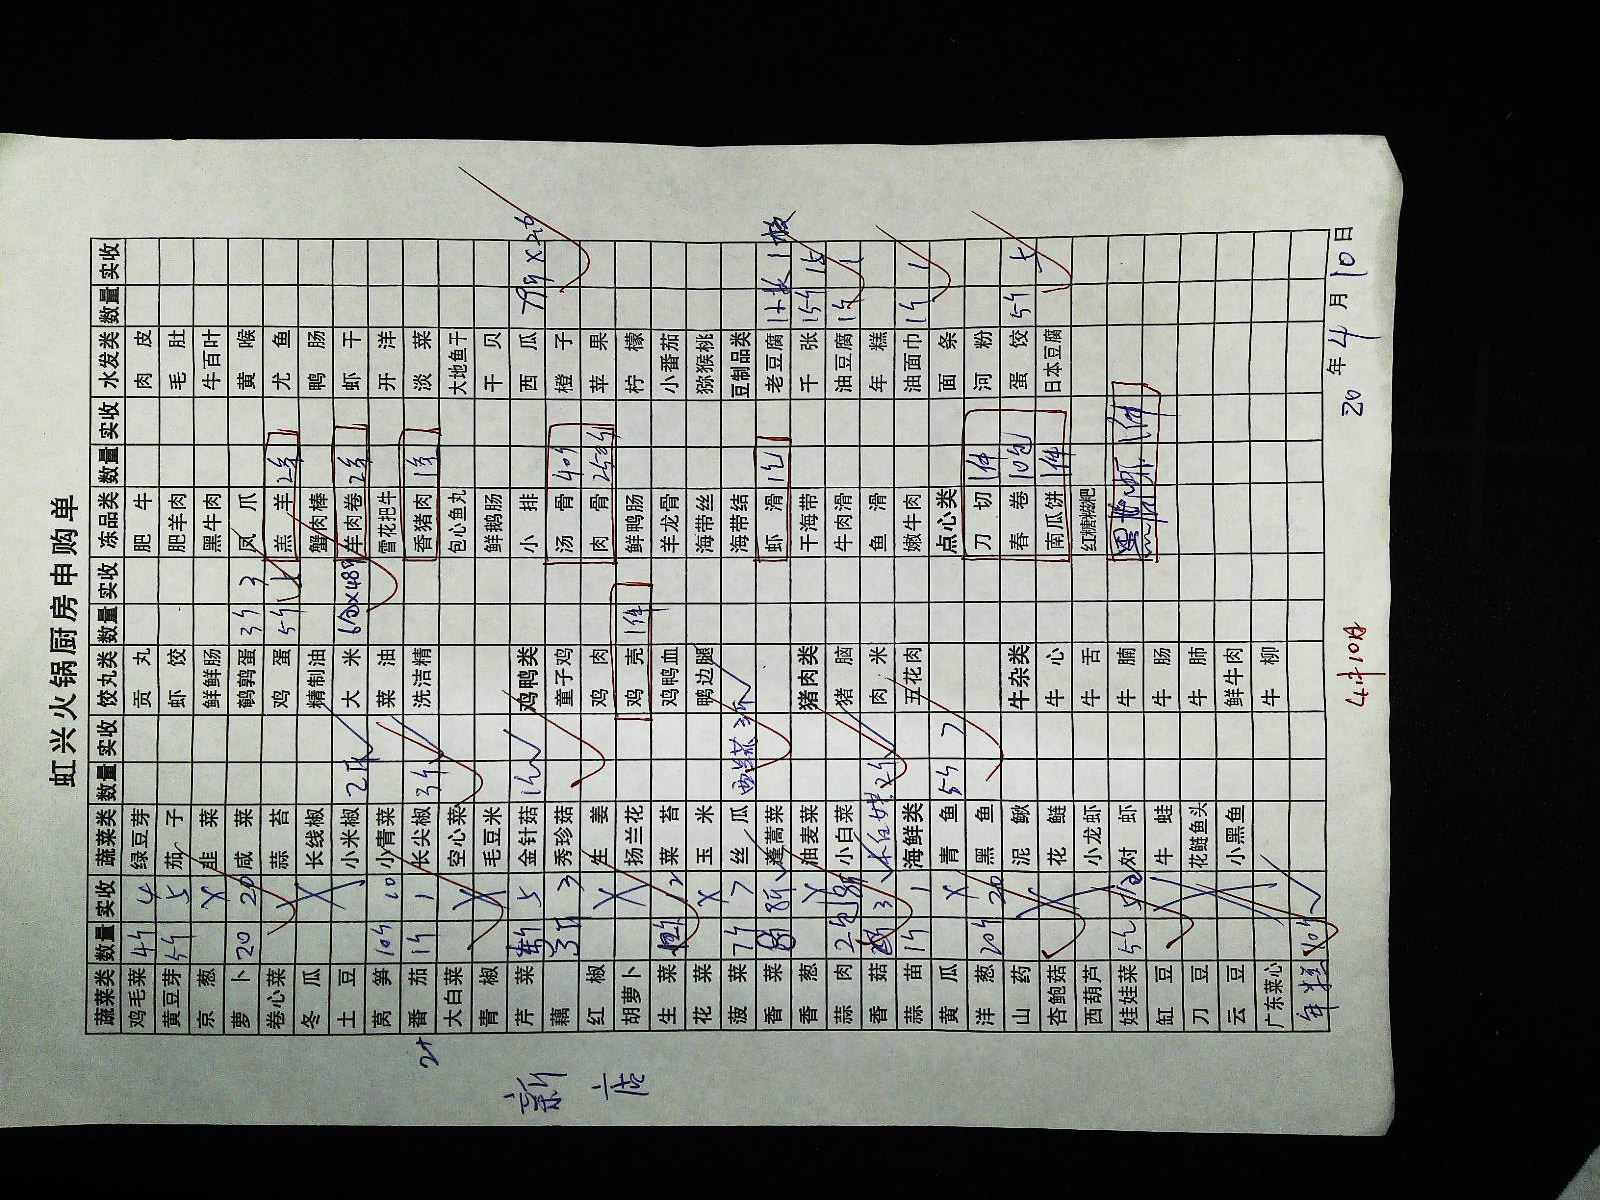 虹兴火锅厨房申购单
蔬菜类 数量 实收 蔬菜类 数量 实收 饺丸类 数量 实收 冻品类 数量 实收 水发类 数量 实收
鸡毛菜 4斤 4 绿豆芽 贡丸 肥牛 肉皮
黄豆芽 5斤 5 茄子 虾饺 肥羊肉 毛肚
京葱 X 韭菜 鲜鲜肠 黑牛肉 牛百叶
萝卜 20 20 咸菜 鹌鹑蛋 3斤 3 凤爪 黄喉
卷心菜 蒜苔 鸡蛋 5斤 羔羊 2条 尤鱼
冬瓜 长线椒 精制油 蟹肉棒 鸭肠
土豆 小米椒 大米 羊肉卷 2条 虾干
莴笋 10斤 10 小青菜 菜油 雪花把牛 开洋
番茄 1斤 1 长尖椒 3斤 洗洁精 香猪肉 1条 淡菜
大白菜 空心菜 包心鱼丸 大地鱼干
青椒 毛豆米 鲜鹅肠 干贝
芹菜 5 金针菇 鸡鸭类 小排 西瓜
藕 3 秀珍菇 童子鸡 汤骨 40斤 橙子
红椒 X 生姜 鸡肉 肉骨 25斤 苹果
胡萝卜 扬兰花 鸡壳 1件 鲜鸭肠 柠檬
生菜 2 菜苔 鸡鸭血 羊龙骨 小番茄
花菜 X 玉米 鸭边腿 海带丝 猕猴桃
菠菜 7斤 7 丝瓜 海带结 豆制品类
香菜 蓬蒿菜 虾滑 1包 老豆腐
香葱 X 油麦菜 猪肉类 干海带 千张
蒜肉 小白菜 猪脑 牛肉滑 油豆腐 1斤 1
香菇 3 肉米 鱼滑 年糕
蒜苗 1斤 1 海鲜类 五花肉 嫩牛肉 油面巾 1斤 1
黄瓜 X 青鱼 5斤 7 点心类 面条
洋葱 20斤 20 黑鱼 刀切 1件 河粉
山药 泥鳅 牛杂类 春卷 10包 蛋饺 5斤
杏鲍菇 花鲢 牛心 南瓜饼 1件 日本豆腐
西葫芦 小龙虾 牛舌 红糖糍粑
娃娃菜 对虾 牛腩
缸豆 牛蛙 牛肠
刀豆 花鲢鱼头 牛肺
云豆 小黑鱼 鲜牛肉
广东菜心 牛柳
年糕 10斤
4月10日
20 年 4 月 10 日
新店